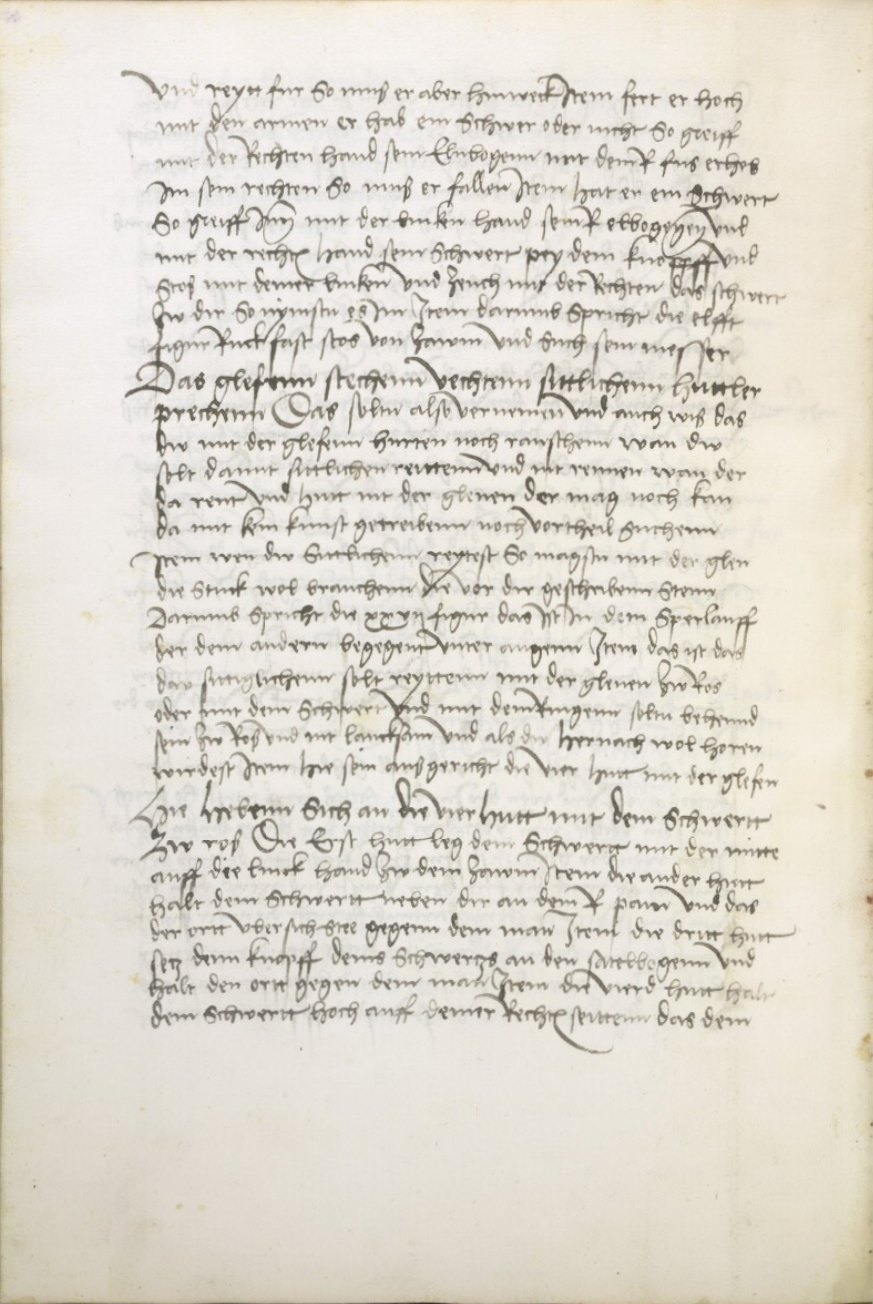 Vnd reytt fur So mus er aber hinweck Item fert er hoch
mit den armen er hab ein Schwer oder nicht So greiff
mit der Rechten hand sein Elnbogenn mit dem R fus erheb
Im sein rechten So mus er fallen Item hat er ein Schwert
So greiff Im mit der linken hand sein R elbogen vnd
mit der recht hand sein Schwert pey dem knopff vnd
Stos mit deiner linken Vnd Zeuch mit der Rechten das schwert
Zw dir So nymstu es Im Item darumb Spricht die elfft
figur Ruck fast stos von Zawm Vnd Such sein messer
Das glefenn stechenn vechtenn sittlichenn huttler
prechenn Das soltu also vernemen Vnd auch wis das
dw mit der glefenn hurten noch rauschenn wan dw
solt damit sittlichen reittenn Vnd nit rennen wan der
da rent Vnd hutt mit der glenen der mag noch kan
da mit kein kunst getreibenn noch Vortheil Suchenn
Item wen dw Sittlichenn reytest So magstu mit der glen
die Stuck wol brauchenn die vor dir geschribenn Stenn
Darumb Spricht die xxvii figur das Ist In dem Sperlauff
der dem andern begegent Vnter augenn Item das ist das
dw sittiglichenn solt reyttenn mit der glenen Zw Ros
oder mit dem Schwert Vnd mit dem Ringenn soltu behennd
sein Zw Ros vnd nit lancksam Vnd als du hernach wol horen
wirdest Item hie sein ausgericht die vier hutt mit der glefen
Hie hebenn Sich an die vier hutt mit dem Schwertt
Zw ros Die Erst hutt leg dein Schwertt mit der mitte
auff die linck hand Zw dem Zawm Item die ander hutt
halt dein Schwertt neben dir an deim R pain Vnd das
der ortt vbersich stee gegenn dem man Item die dritt hutt
setz denn knopff deins Schwertzs an den satelbogenn Vnd
halt den ortt gegen dem man Item die Vierd hutt halt
dein Schwertt hoch auff deiner Recht seittenn das dein